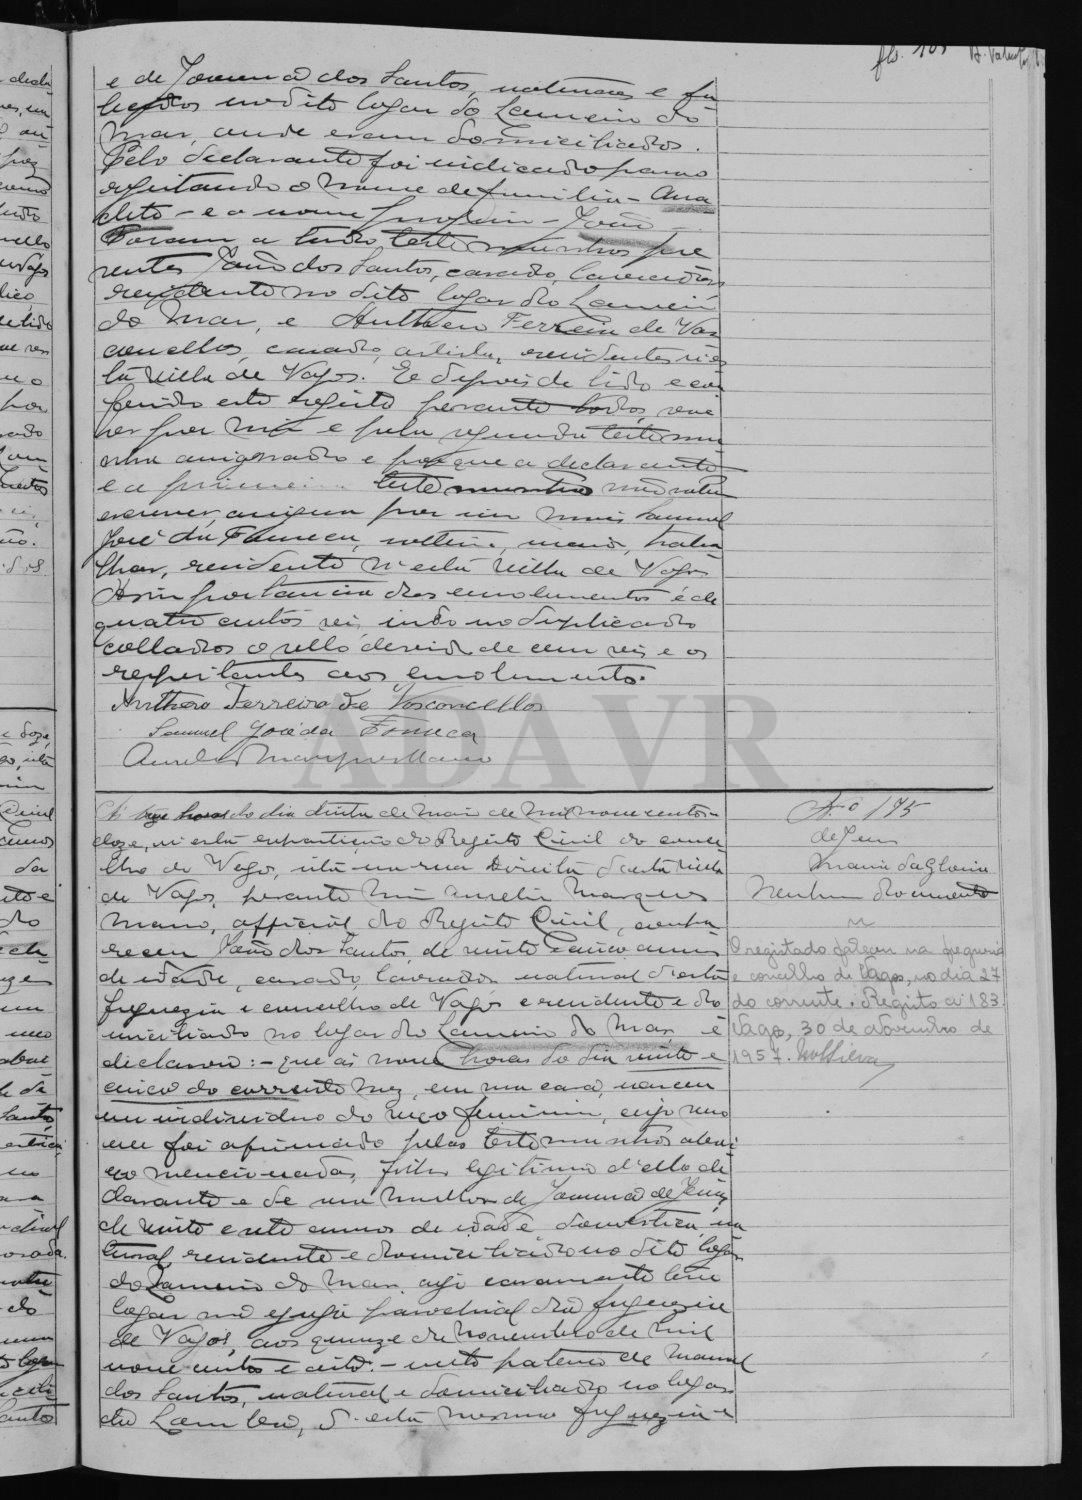 fls. 101
e de Joanna dos Santos, naturaes e fa
lecidos no dito logar do Lameiro do
Mar, onde eram domiciliados.
Pelo declarante foi indicado para o
registando o nome de familia - Ana
cleto - e o nome proprio - João
Foram a tudo testemunhas pre
sentes João dos Santos, casado, lavrador
residente no dito logar do Lameiro
do Mar, e Anthero Ferreira de Vas
concellos, casado, artista, residentes n'es
ta villa de Vagos. E depois de lido e con
ferido este registo perante todos, vae
ser por mim e pela segunda testemu
nha assignado e porque a declarante
e a primeira testemunha não sabem
escrever, assigna por um Manuel
José da Fonseca, solteiro, maior, traba
lhar, residente n'esta villa de Vagos
A importancia dos emolumentos é de
quatro centos reis, indo no duplicado
collados o sello devido de cem reis e os
respeitantes aos emolumentos.
Anthero Ferreira de Vasconcellos
Samuel José da Fonseca
Aurelio Marques Mano
ADAVR
Ás onze horas do dia trinta de Maio de mil nove centos e
doze, n'esta repartição do Registo Civil do conce
lho de Vagos, sita na rua Direita d'esta villa
de Vagos, perante mim Aurelio Marques
Mano, official do Registo Civil, compa
receu João dos Santos, de vinte e cinco annos
de idade, casado, lavrador natural d'esta
freguezia e concelho de Vagos e residente e do
miciliado no logar do Lameiro do Mar e
declarou: - que ás nove horas do dia vinte e
cinco do corrente mez, em sua casa, nasceu
um individuo do sexo feminino, cujo nas
cer foi afirmado pelas testemunhas abai
xo mencionadas, filho legitimo d'elle de
clarante e de sua mulher de Joanna de Jesus
de vinte e sete annos de idade domestica, na
tural, residente e domiciliado no dito logar
do Lameiro do Mar, cujo casamento teve
logar na egreja parochial da freguezia
de Vagos, aos quinze de Novembro de mil
nove centos e oito; - neto paterno de Manuel
dos Santos, natural e domiciliado no logar
da Lombea, d'esta mesma freguezia e
N.º 175
de Jesus
Maria da Gloria
Nenhum documento
O registado faleceu na freguesia
e concelho de Vagos, no dia 27
do corrente. Registo nº 183.
Vagos, 30 de Novembro de
1957.